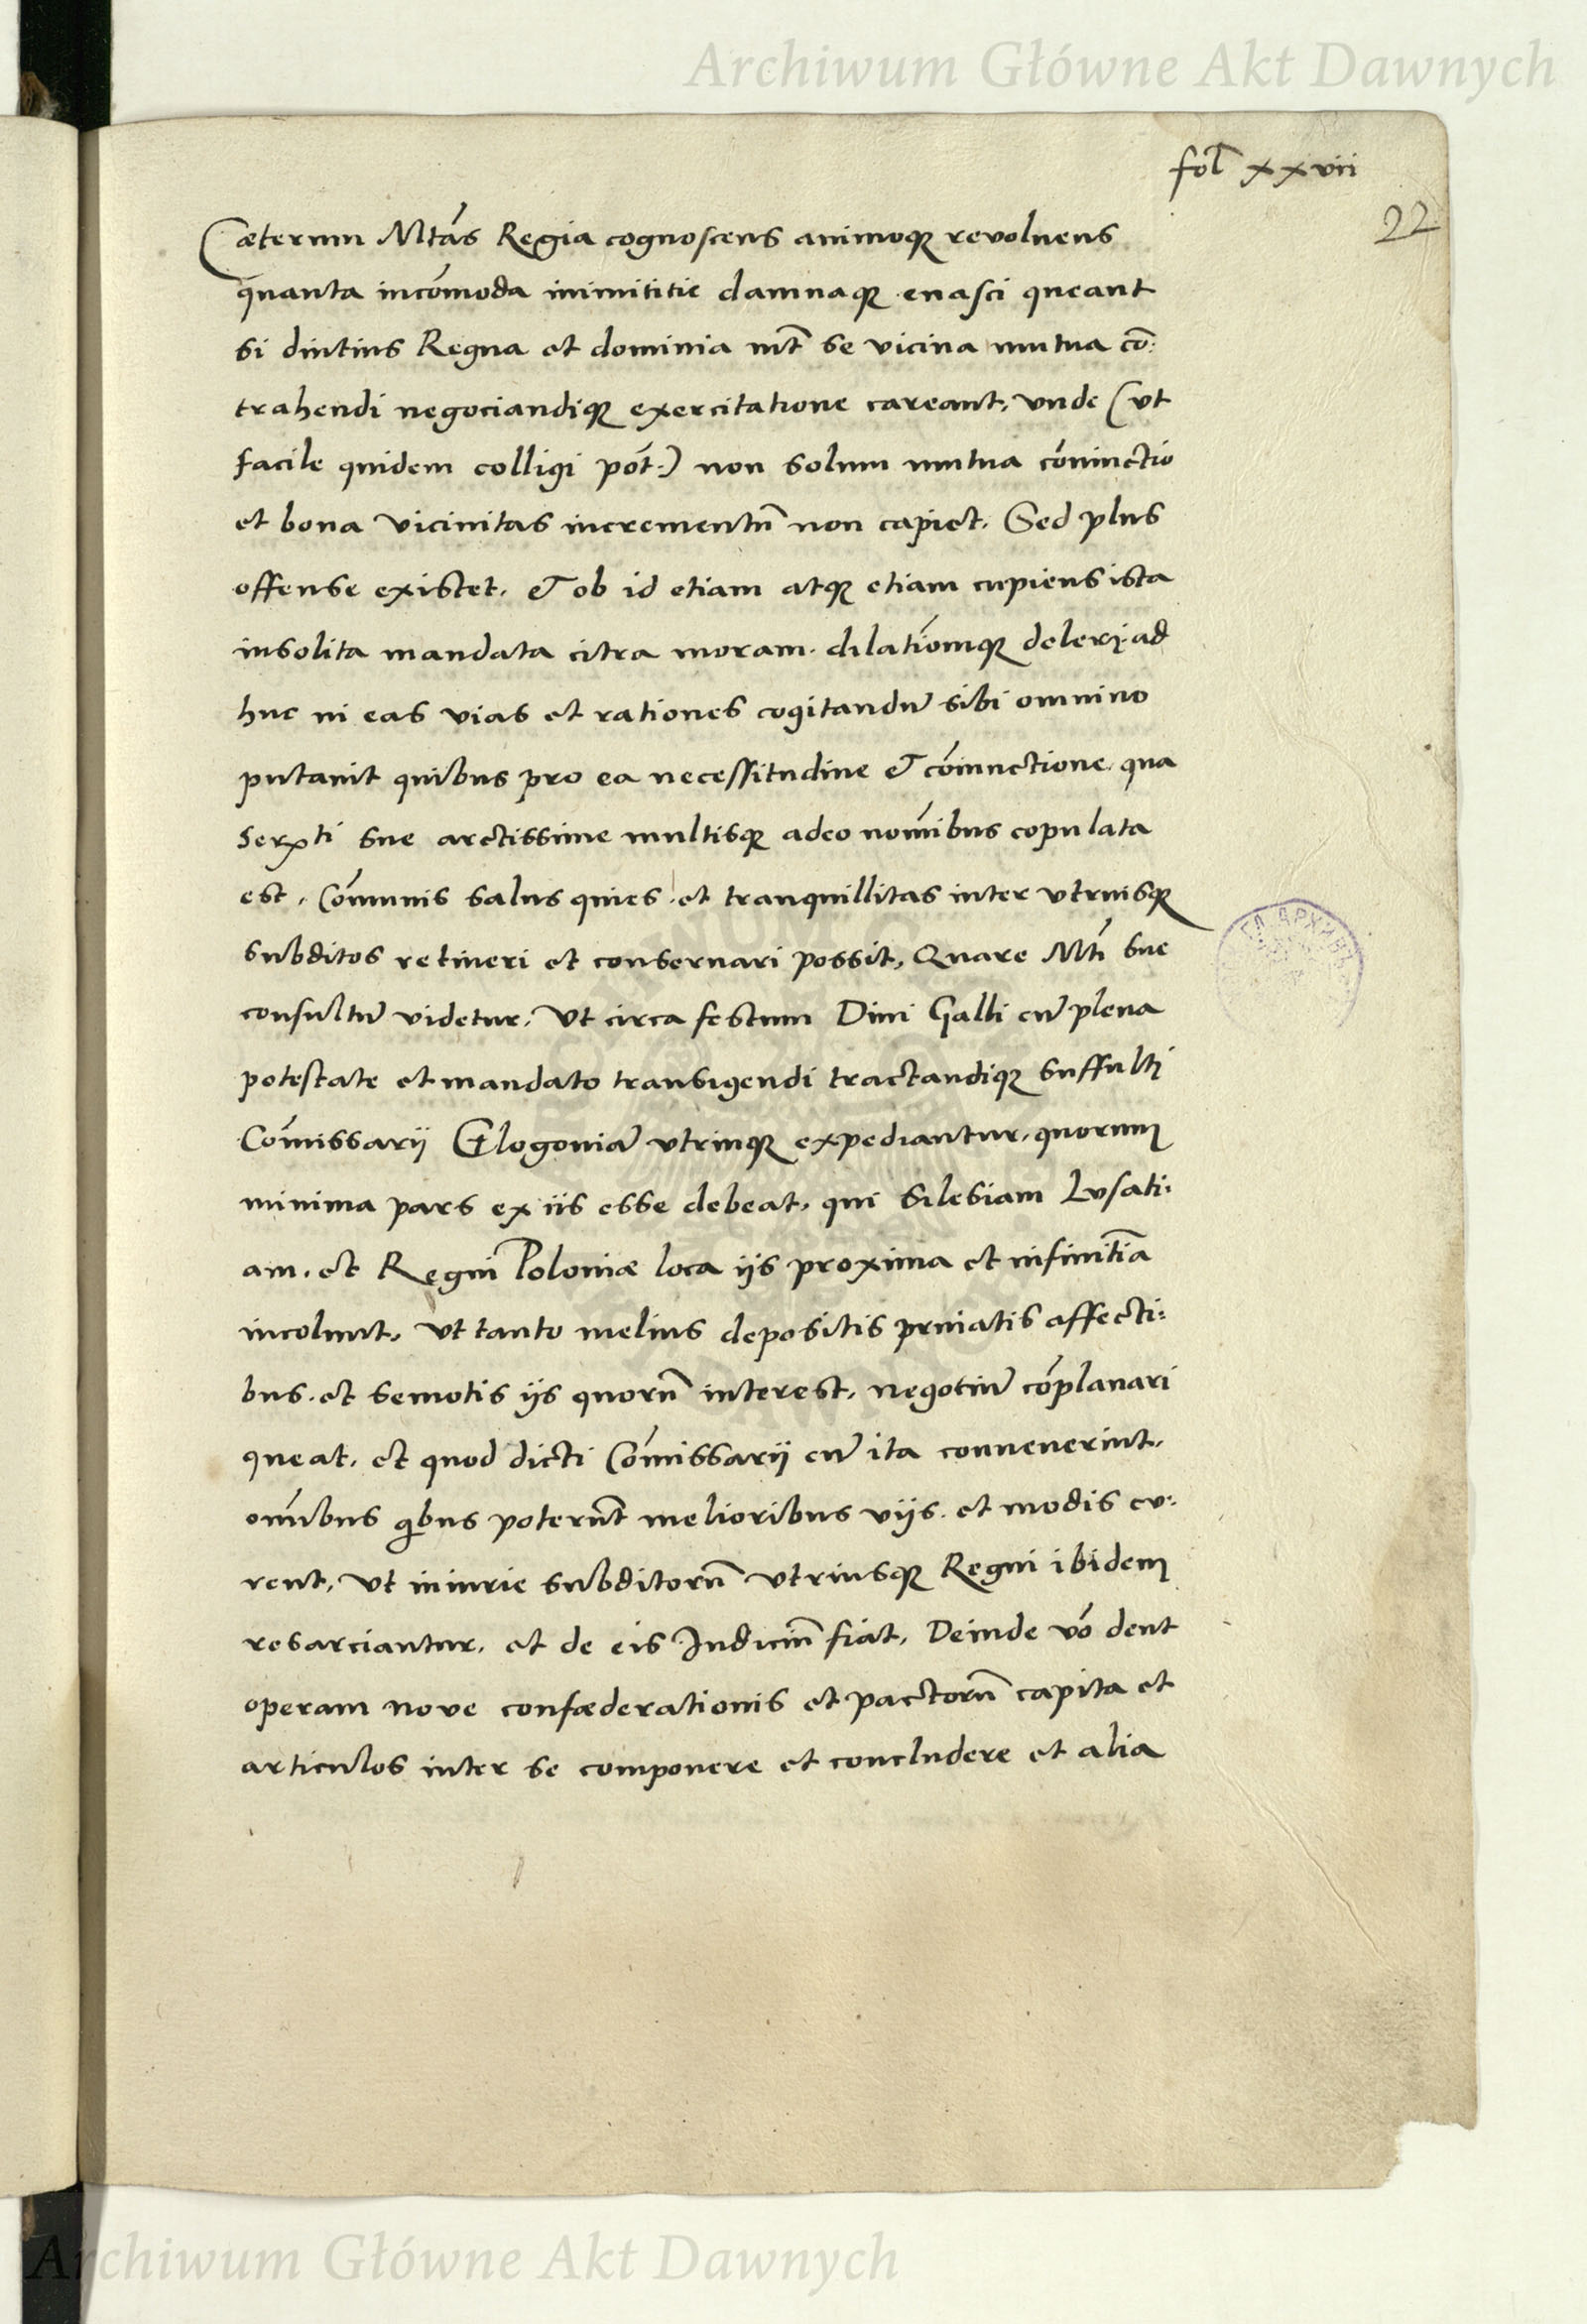 Archiwum Główne Akt Dawnych
fol xxvii
22
Cæterum Mtás Regia cognoscens animoqꝫ revoluens
quanta incõmoda inimititie damnaqꝫ enasci queant
si diutius Regna et dominia int̃ se vicina mutua cõ:
trahendi negociandiqꝫ exercitatione careant, vnde (vt
facile quidem colligi põt.) non solum mutua cõniunctio
et bona vicinitas incrementũ non capiet. Sed plus
offense existet. & ob id etiam atqꝫ etiam cupiens ista
insolita mandata citra moram dilatiõmqꝫ deleri. ad
huc in eas vias et rationes cogitandũ sibi omnino
putauit quibus pro ea necessitudine & cõiunctione qua
Serti sue arctissime multisqꝫ adeo nomĩbus copulata
est, Cõmunis salus quies et tranquillitas inter vtriusqꝫ
subditos retineri et conseruari possit, Quare Mtĩ sue
consultũ videtur, Vt circa festum Diui Galli cũ plena
potestate et mandato transigendi tractandiqꝫ suffulti
Cõmissarij Glogoniã vtrinqꝫ expediantur, quorum
minima pars ex iis esse debeat, qui Silesiam Lusati:
am, et Regni Poloniæ loca ijs proxima et infinitĩa
incolunt, Vt tanto melius depositis priuatis affecti:
bus et semotis ijs quorũ interest, negotiũ cõplanari
queat, et quod dicti Cõmissarij cũ ita conuenerint,
omĩbus qibus poterũt melioribus viis et modis cu:
rent, Vt iniurie subditorũ vtriusqꝫ Regni ibidem
resarciantur, et de eis Iudiciũ fiat, Deinde võ dent
operam nove confæderationis et pactorũ capita et
articulos inter se componere et concludere et alia
Archiwum Główne Akt Dawnych